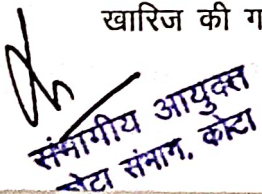 खारिज की ग
संभागीय आयुक्त
कोटा संभाग, कोटा